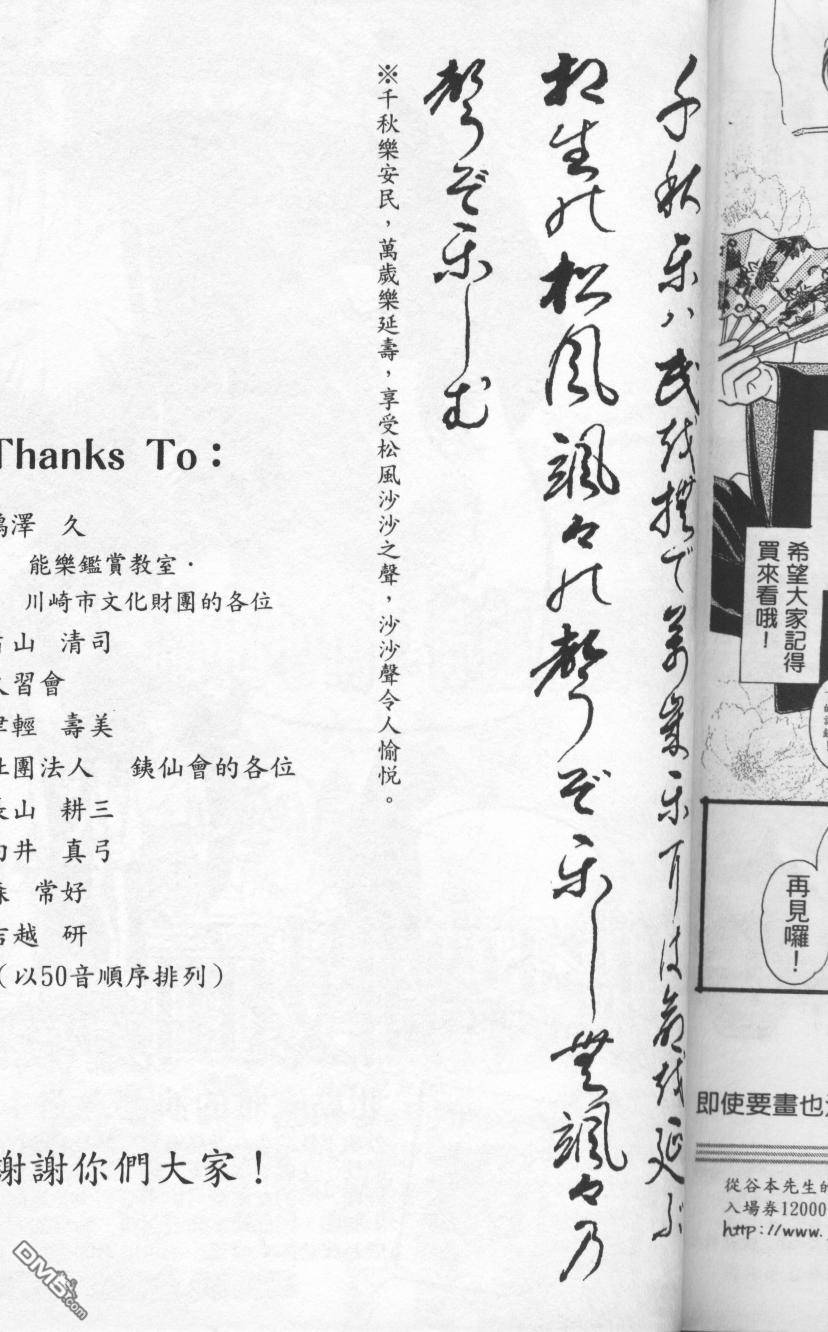 希望大家記得
買來看哦！
再見囉！
即使要畫也
從谷本先生的
入場券12000
http://www.
千秋楽ハ民を撫で萬歳楽には命を延ぶ
相生の松風颯々の聲ぞ楽しむ颯々乃
聲ぞ楽しむ
※千秋樂安民，萬歲樂延壽，享受松風沙沙之聲，沙沙聲令人愉悅。
Thanks To：
澤 久
能樂鑑賞教室．
川崎市文化財團的各位
山 清司
習會
津輕 壽美
社團法人 銕仙會的各位
長山 耕三
向井 真弓
森 常好
吉越 研
（以50音順序排列）
謝謝你們大家！
DM5.com